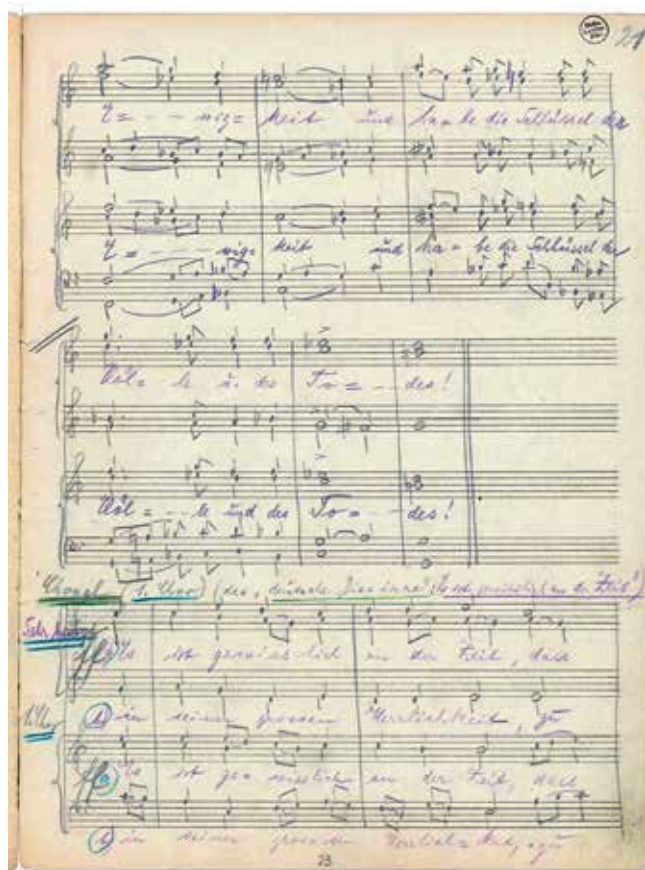 21
E= - - - wig= keit und ha=be die Schlüssel der
E= - - - - wig= keit und ha=be die Schlüssel der
Höl= - le u. des To= - - des!
Höl= - - le und des To= - - des!
Choral (1. Chor) (das „deutsche Dies irae": „Es ist gewisslich an der Zeit")
Sehr
ff a) Es ist gewiss=lich an der Zeit, dass
1. Chor
b) in seiner grossen Herrlichkeit, zu
ff a) Es ist gewisslich an der Zeit, dass
b) in seiner grossen Herrlich=keit, zu
23